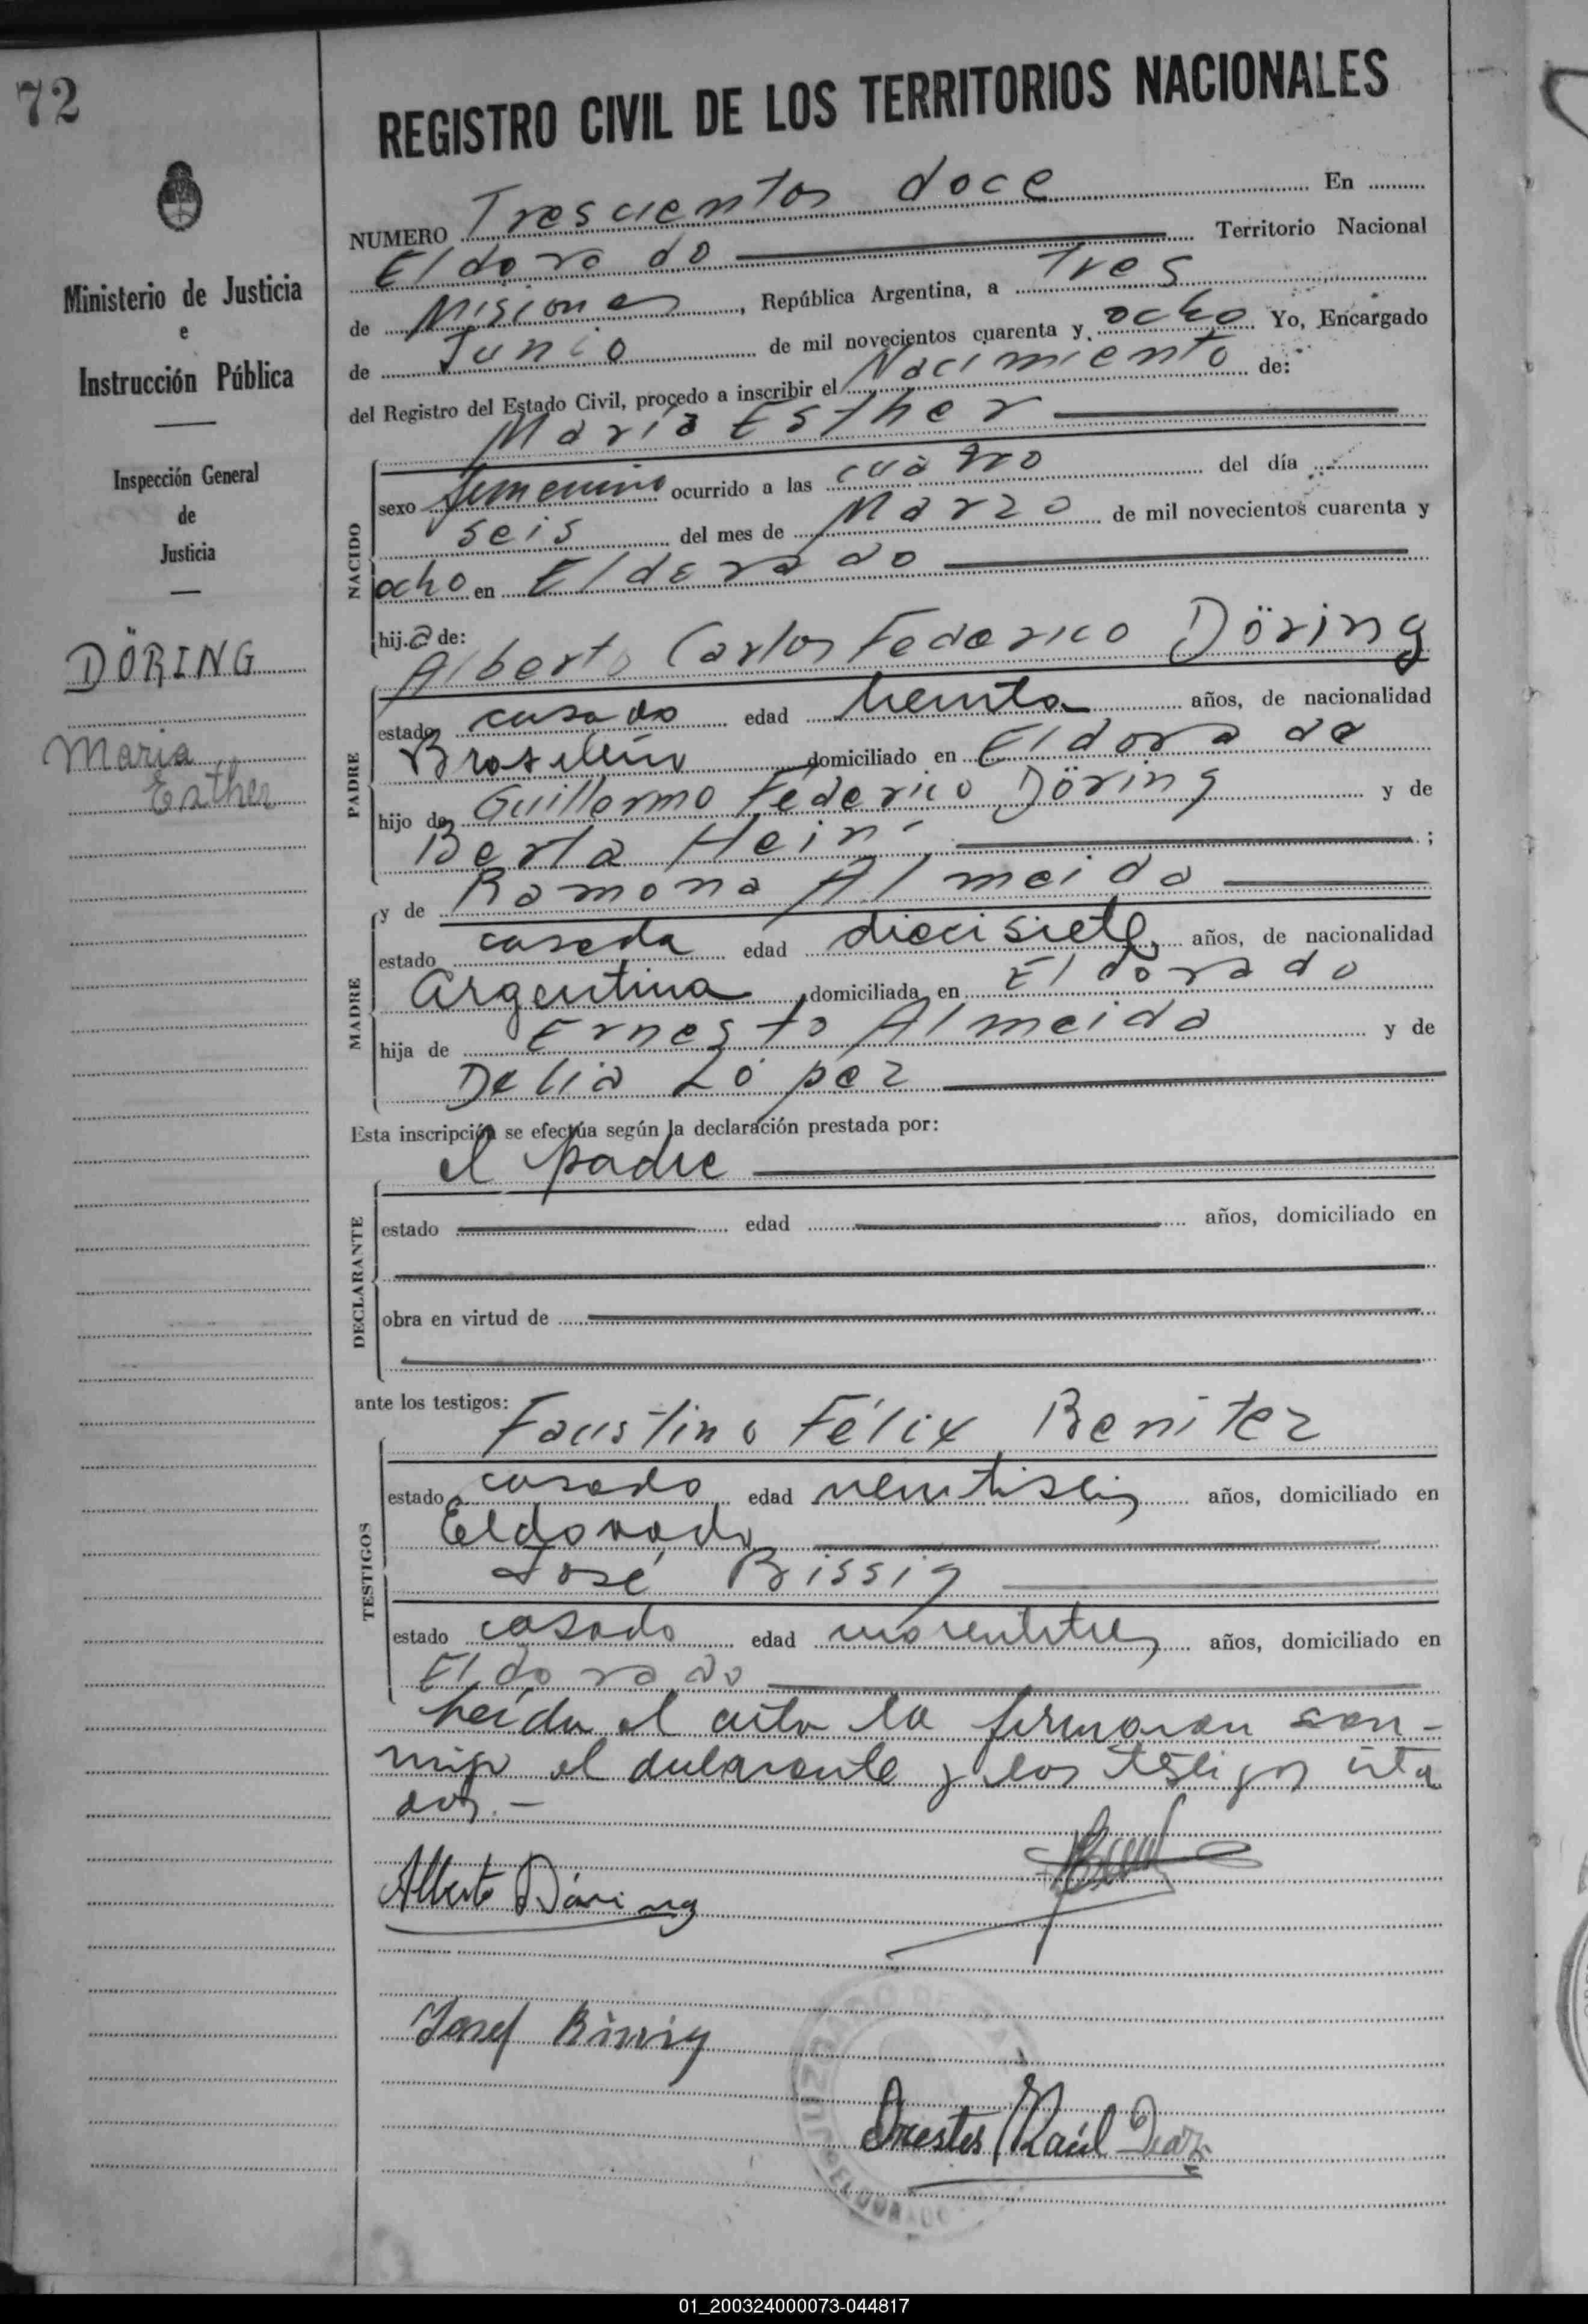 72
REGISTRO CIVIL DE LOS TERRITORIOS NACIONALES
Ministerio de Justicia
e
Instrucción Pública
Inspección General
de
Justicia
DÖRING
Maria
Esther
NUMERO Trescientos doce En
Eldorado Territorio Nacional
de Misiones, República Argentina, a Tres
de Junio de mil novecientos cuarenta y ocho Yo, Encargado
del Registro del Estado Civil, procedo a inscribir el Nacimiento de:
María Esther
NACIDO
sexo femenino ocurrido a las cuatro del día
seis del mes de Marzo de mil novecientos cuarenta y
ocho en Eldorado
hija de:
Alberto Carlos Federico Döring
PADRE
estado casado edad treinta años, de nacionalidad
Brasileño domiciliado en Eldorado
hijo de Guillermo Féderico Döring y de
Berta Hein ;
y de Ramona Almeida
MADRE
estado casada edad diecisiete, años, de nacionalidad
Argentina domiciliada en Eldorado
hija de Ernesto Almeida y de
Delia López
Esta inscripción se efectúa según la declaración prestada por:
el padre
DECLARANTE
estado edad años, domiciliado en
obra en virtud de
ante los testigos:
Faustino Félix Benitez
TESTIGOS
estado casado edad veintiseis años, domiciliado en
Eldorado
José Bissig
estado casado edad años, domiciliado en
Eldorado
Leída el acta la firmaron con-
migo el declarante y los testigos cita
dos.-
Alberto Döring
Josef Bissig
Orestes Raúl Diaz
ELDORADO
01_200324000073-044817